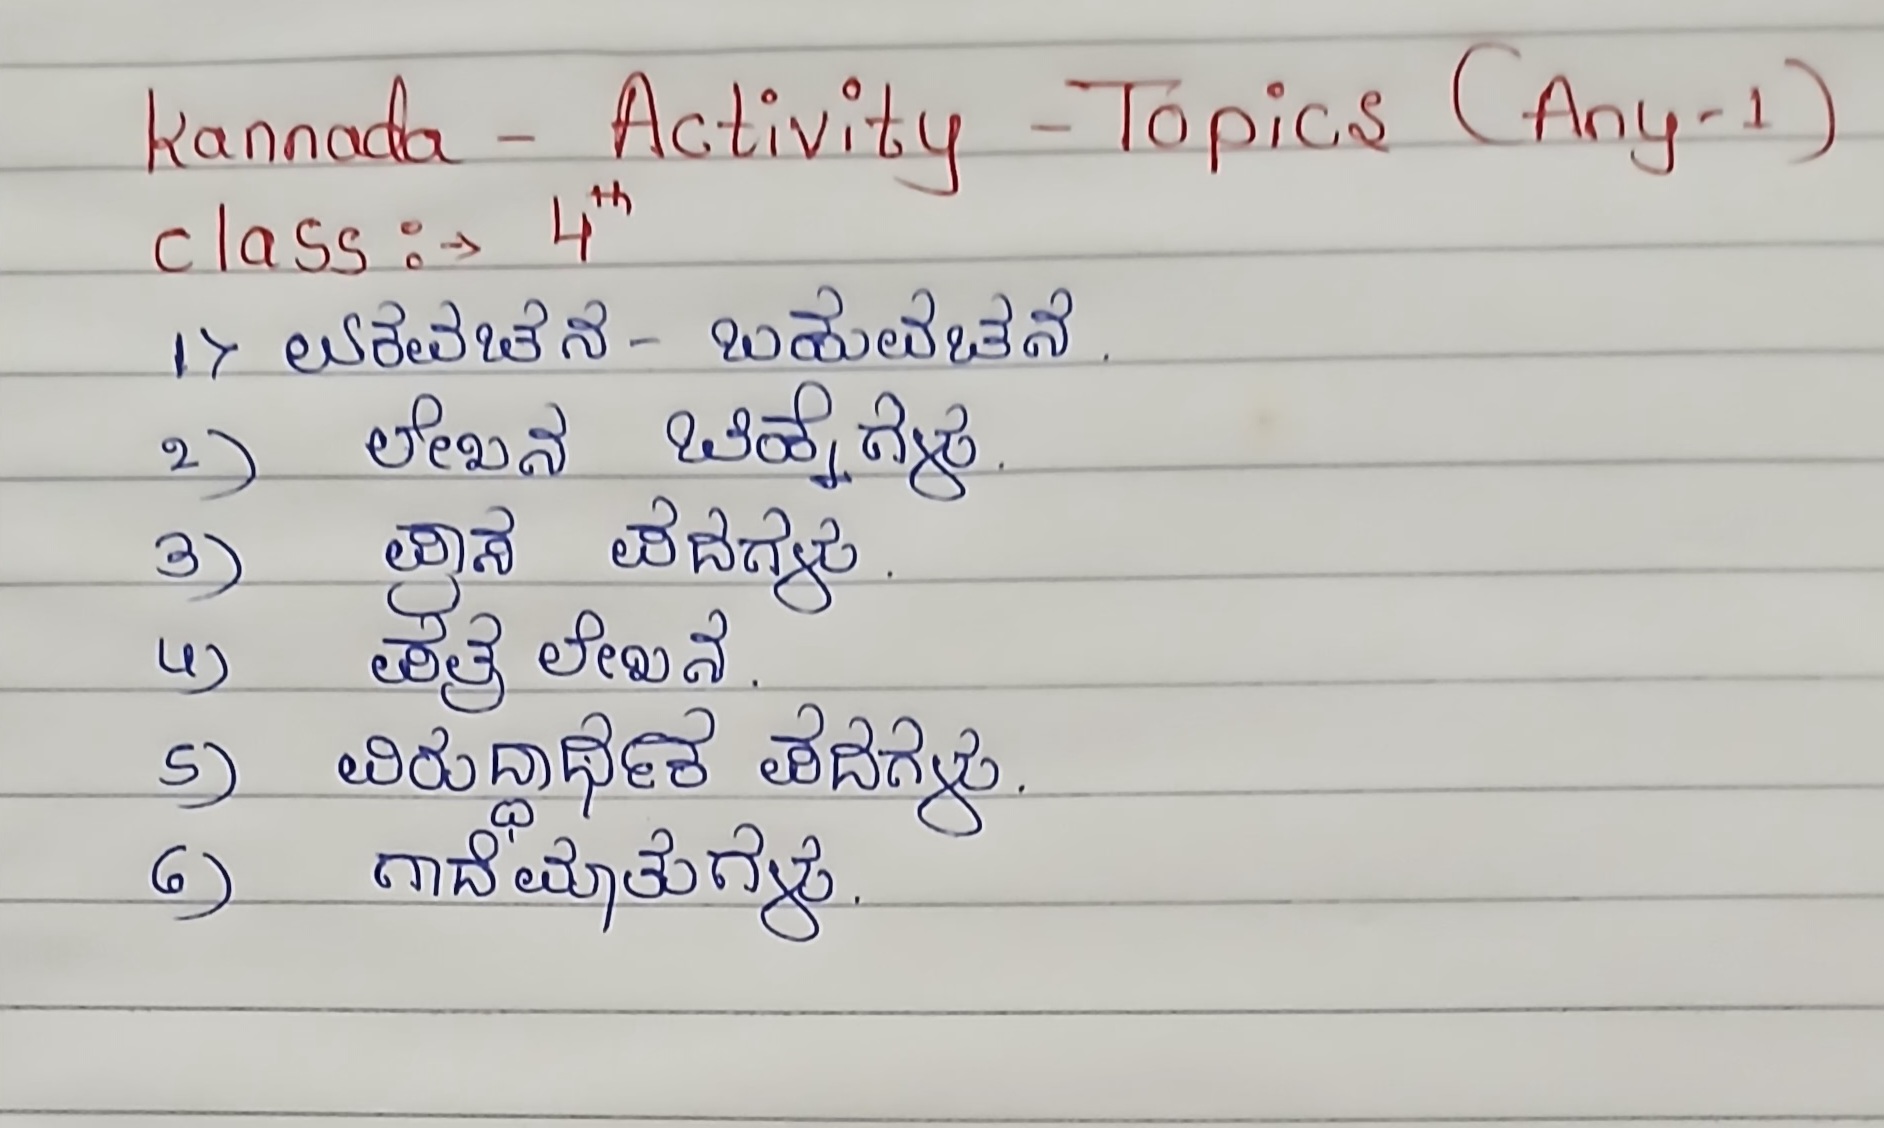 Kannada - Activity - Topics (Any-1)
class :→ 4th
1> ಏಕವಚನ - ಬಹುವಚನ.
2) ಲೇಖನ ಚಿಹ್ನೆಗಳು.
3) ಪ್ರಾಸ ಪದಗಳು.
4) ಪತ್ರ ಲೇಖನ.
5) ವಿರುದ್ಧಾರ್ಥಕ ಪದಗಳು.
6) ಗಾದೆಮಾತುಗಳು.